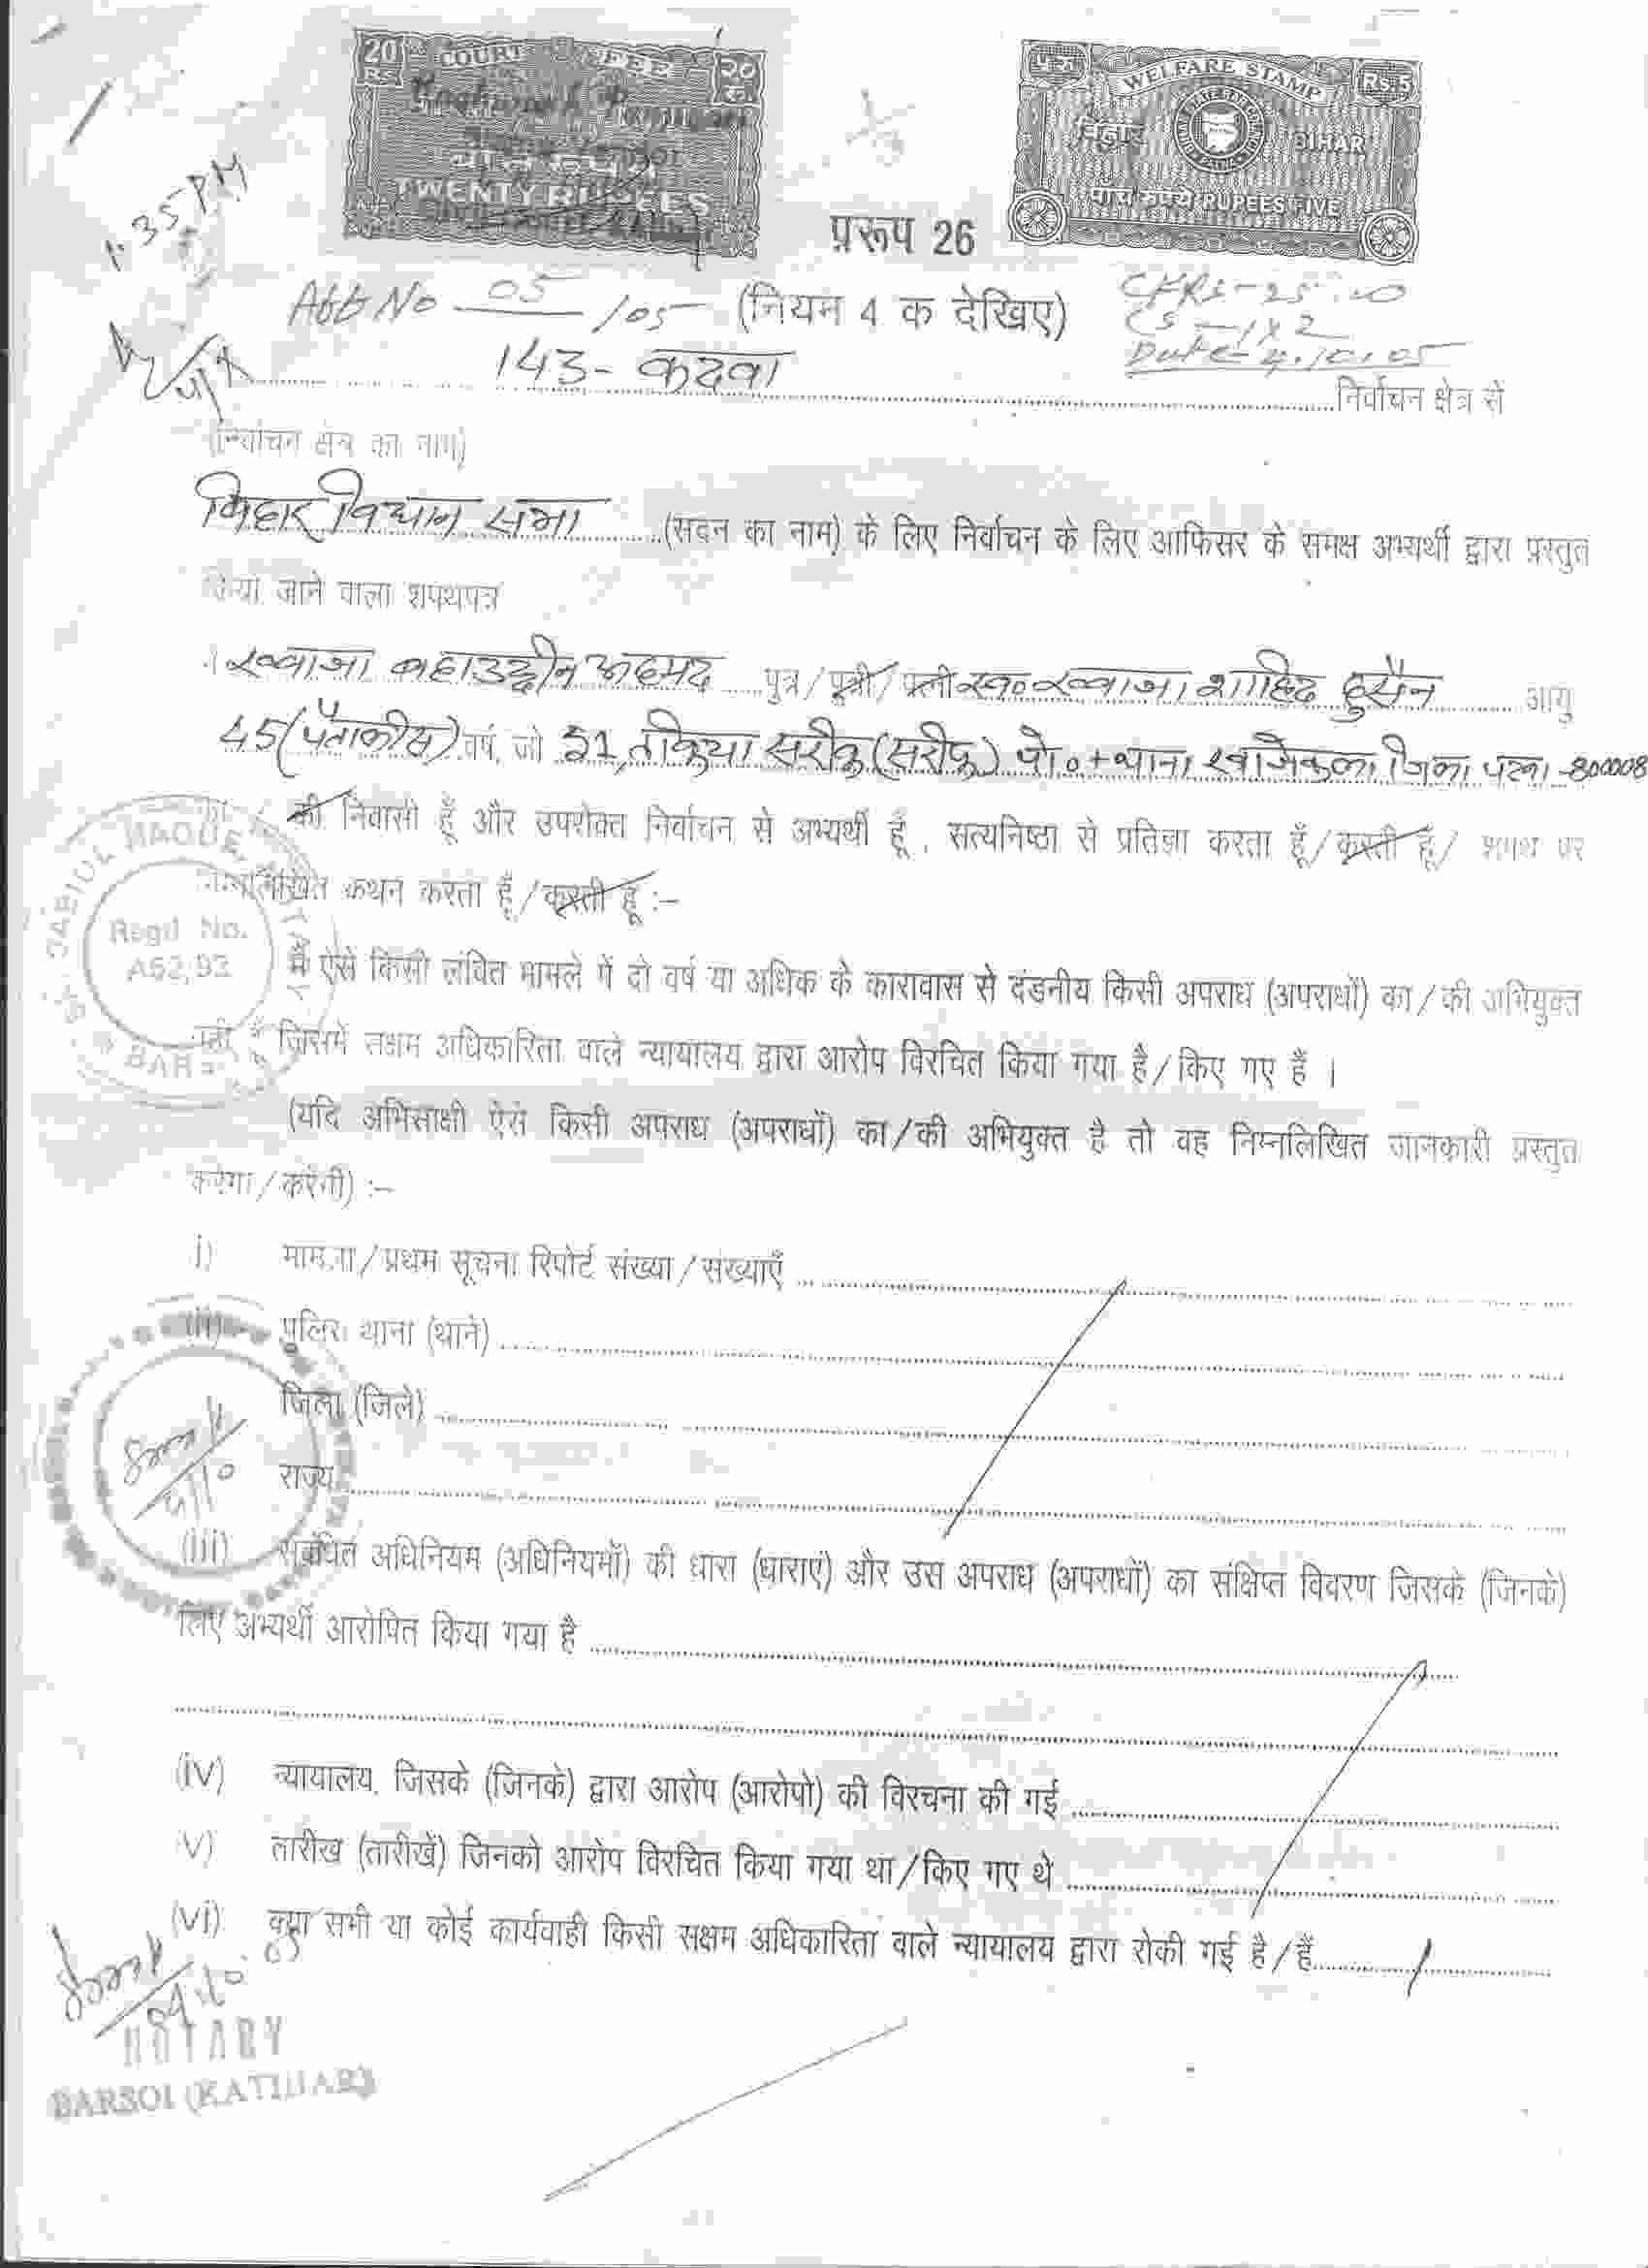 20 COURT FEE २० रु
RS.
TWENTY RUPEES
WELFARE STAMP Rs.5
बिहार BIHAR
पांच रूपये RUPEES FIVE
1.35 PM
प्ररूप 26
Aff No 05/05 (नियम 4 क देखिए)
CFRs-25.00
CS-1x2
Date-4.10.05
143- कदवा निर्वाचन क्षेत्र से
(निर्वाचन क्षेत्र का नाम)
बिहार विधान सभा (सदन का नाम) के लिए निर्वाचन के लिए आफिसर के समक्ष अभ्यर्थी द्वारा प्रस्तुत
किया जाने वाला शपथपत्र
ख्वाजा बहाउद्दीन अहमद पुत्र/पुत्री/पत्नी स्व० ख्वाजा शाहिद हुसैन आयु
45(पैंतालीस) वर्ष, जो 21, तकिया सरीफ (सरीफ) पो०+थाना खाजेकला जिला पटना-800008
की निवासी हूँ और उपरोक्त निर्वाचन से अभ्यर्थी हूँ, सत्यनिष्ठा से प्रतिज्ञा करता हूँ/करती हूँ/ शपथ पर
निम्नलिखित कथन करता हूँ/करती हूँ :–
Regd No.
A62/93
मैं ऐसे किसी लंबित मामले में दो वर्ष या अधिक के कारावास से दंडनीय किसी अपराध (अपराधों) का/की अभियुक्त
नहीं हूँ जिसमें सक्षम अधिकारिता वाले न्यायालय द्वारा आरोप विरचित किया गया है/किए गए हैं ।
(यदि अभिसाक्षी ऐसे किसी अपराध (अपराधों) का/की अभियुक्त है तो वह निम्नलिखित जानकारी प्रस्तुत
करेगा/करेगी) :–
i) मामला/प्रथम सूचना रिपोर्ट संख्या/संख्याएँ
(ii) पुलिस थाना (थाने)
जिला (जिले)
राज्य
(iii) संबंधित अधिनियम (अधिनियमों) की धारा (धाराएं) और उस अपराध (अपराधों) का संक्षिप्त विवरण जिसके (जिनके)
लिए अभ्यर्थी आरोपित किया गया है
(iv) न्यायालय, जिसके (जिनके) द्वारा आरोप (आरोपो) की विरचना की गई
V) तारीख (तारीखें) जिनको आरोप विरचित किया गया था/किए गए थे
(vi) क्या सभी या कोई कार्यवाही किसी सक्षम अधिकारिता वाले न्यायालय द्वारा रोकी गई है/हैं
NOTARY
BARSOI (KATIHAR)